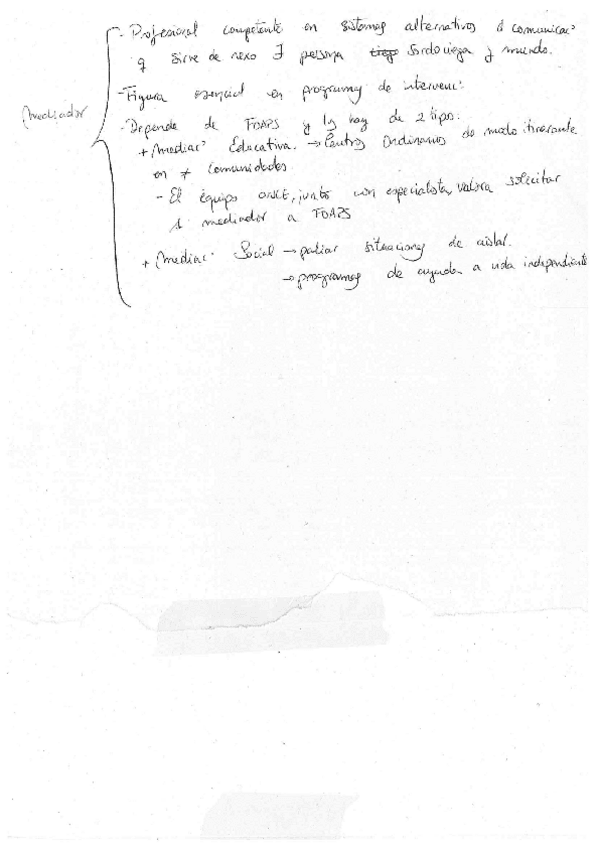 - Profesional competente en sistemas alternativos d comunicac°
q sirve de nexo persona sordociega y mundo.
Mediador
- Figura esencial en programas de intervenc°
- Depende de FOAPS y los hay de 2 tipos:
+ Mediac° Educativa → Centros Ordinarios de modo itinerante
en ≠ comunidades
- El equipo ONCE, junto con especialista, valora solicitar
1 mediador a FOAPS
+ Mediac° Social → paliar situaciones de aislar.
→ programas de ayuda a vida independiente